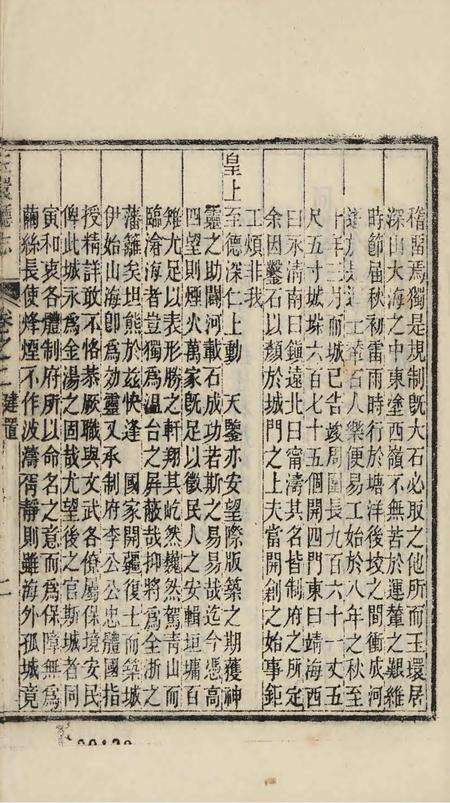 稽留焉獨是規制既大石必取之他所而玉環居
深山大海之中東塗西嶺不無苦於運輦之艱維
時節屆秋初雷雨時行於塘洋後垵之間衝成河
百人樂便易工始於八年之秋至
十年三月而城已告竣周圍長九百六十一丈五
尺五寸城垜六百七十五個開四門東曰靖海西
曰永清南曰鎮遠北曰甯濤其名皆制府之所定
余因鑿石以類於城門之上夫當開創之始事鉅
工煩非我
皇上至德深仁上動　天鑒亦安望際版築之期獲神
靈之助闢河載石成功若斯之易易哉迄今憑高
四望則煙火萬家既足以徵民人之安輯垣墉百
雉尤足以表形勝之軒翔其屹然巍然駕青山而
臨滄海者豈獨爲溫台之屏蔽哉抑將爲全浙之
藩籬矣坦熊於茲快逢　國家開疆復土而築城
伊始山海卽爲効靈又承制府李公公忠體國指
授精詳敢不恪恭厥職與文武各僚屬保境安民
俾此城永爲金湯之固哉尤望後之官斯城者同
寅和衷各體制府所以命名之意而爲保障無爲
繭絲長使烽煙不作波濤胥靜則雖海外孤城竟
玉環廳志　卷之二　建置　二